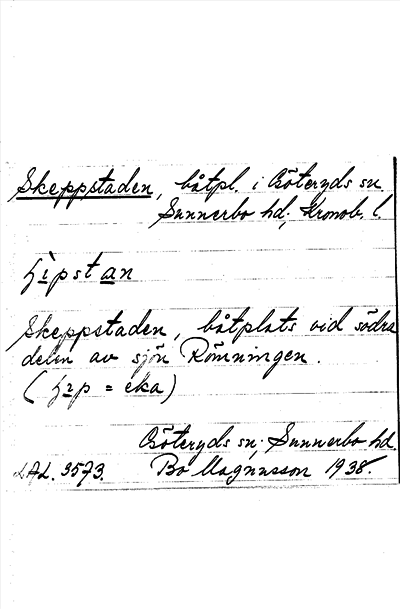 Skeppstaden, båtpl. i Göteryds sn.
Sunnerbo hd., Kronob. l.
ɧìpstan
Skeppstaden, båtplats vid södra
delen av sjön Römningen.
(ɧɪp = eka)
Göteryds sn., Sunnerbo hd.
LAL. 3573. Bo Magnusson 1938.